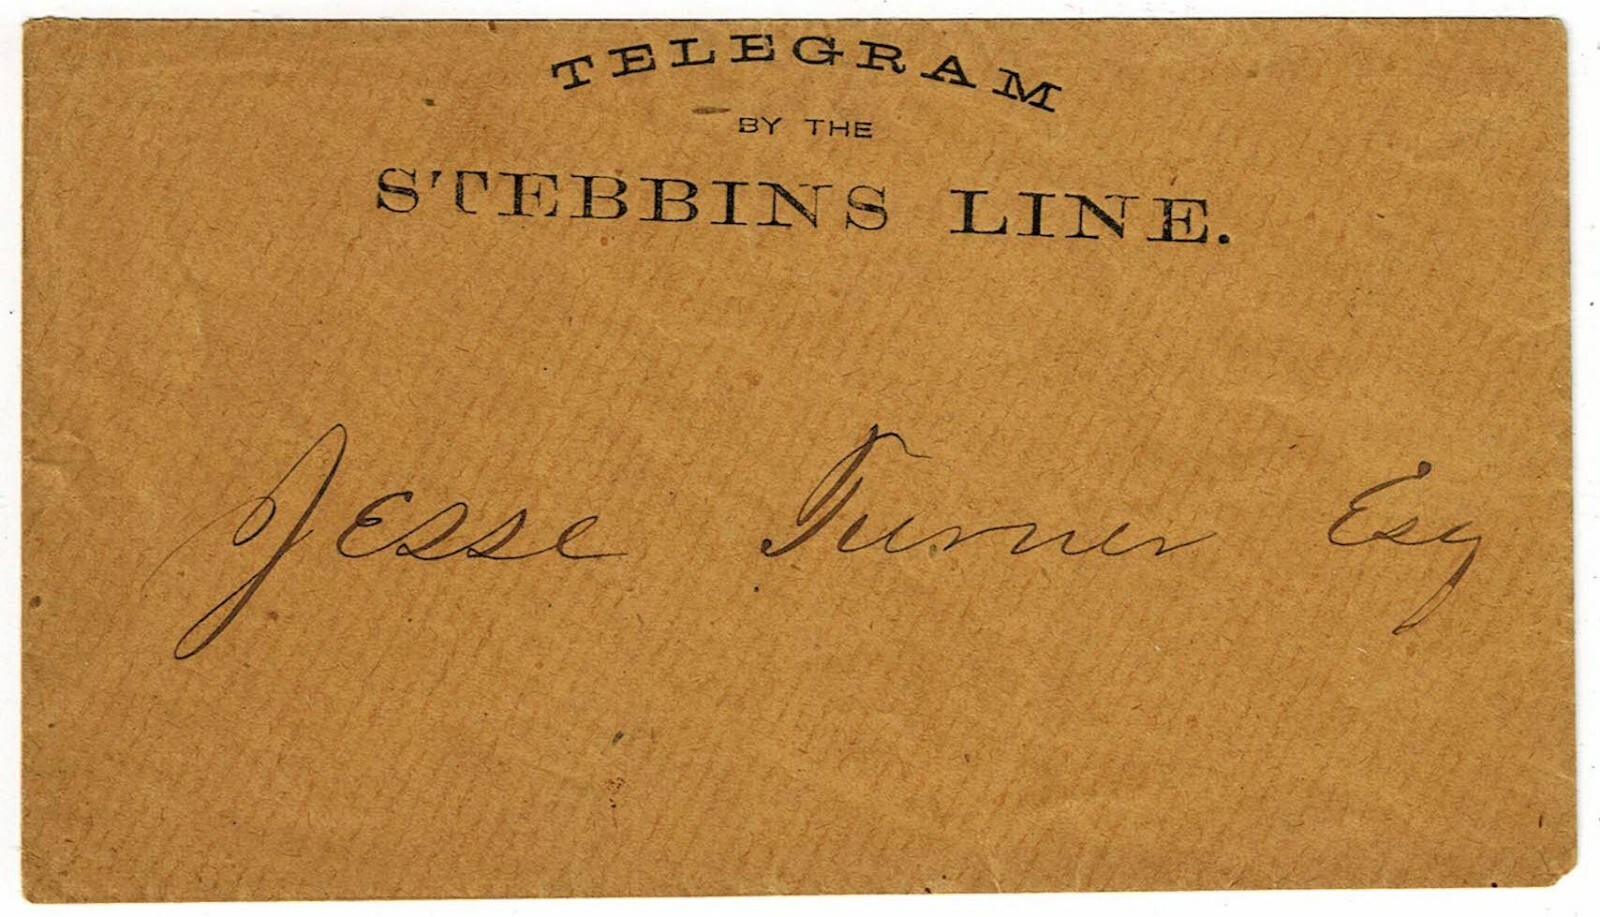 TELEGRAM
BY THE
STEBBINS LINE.
Jesse Turner Esq